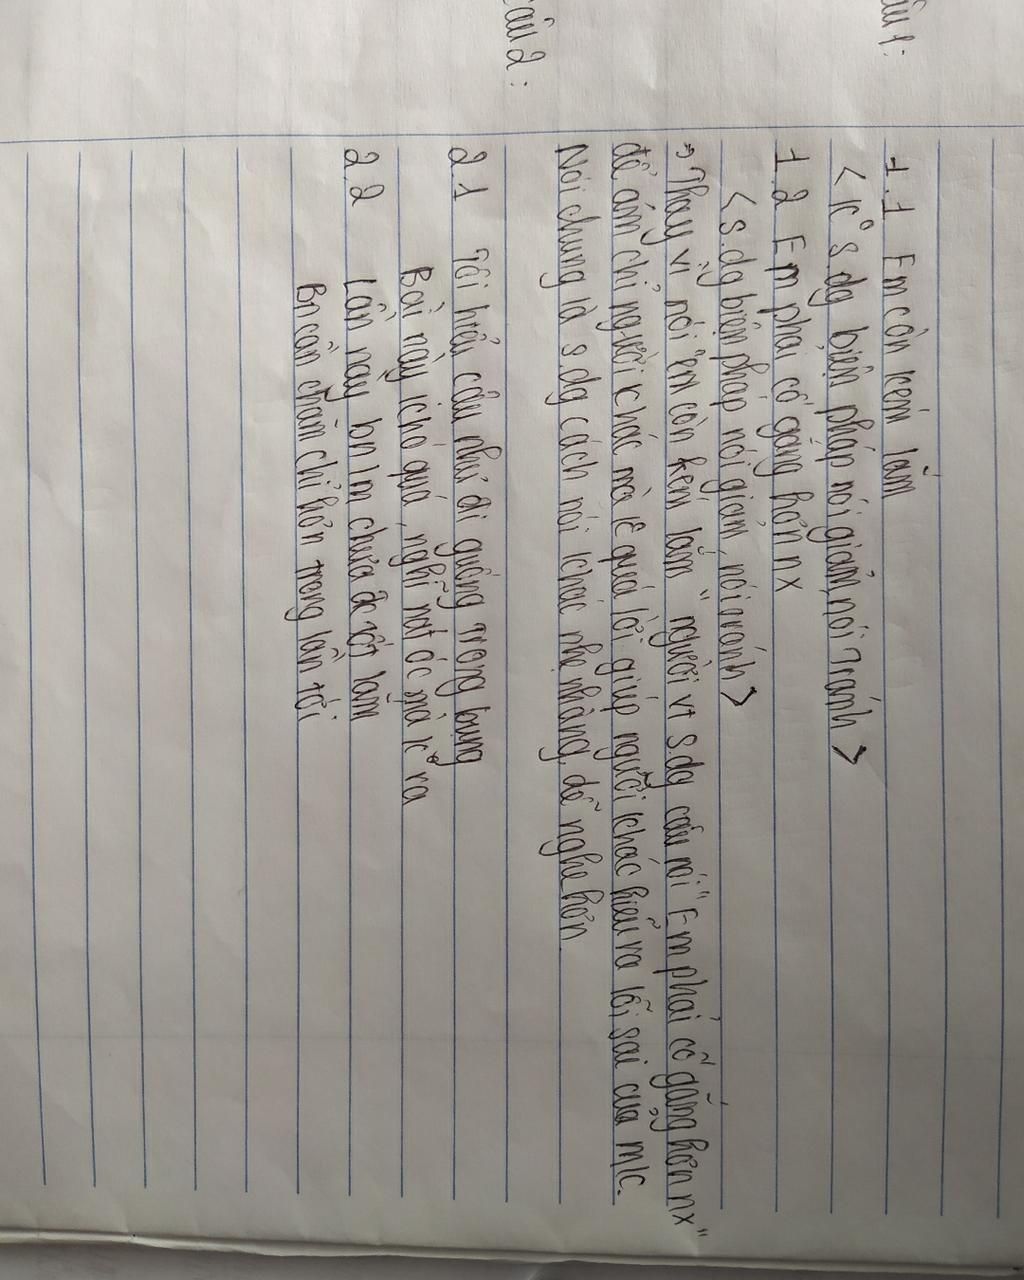 Câu 1:
1.1 Em còn kém lắm
< k° s.dg biện pháp nói giảm, nói tránh >
1.2 Em phải cố gắng hơn nx
< s.dg biện pháp nói giảm, nói tránh >
→ Thay vì nói "em còn kém lắm" người vt s.dg câu nói "Em phải cố gắng hơn nx"
để ám chỉ người khác mà k° quá lời giúp người khác hiểu ra lỗi sai của m/c.
Nói chung là s.dg cách nói khác nhẹ nhàng, dễ nghe hơn
Câu 2:
2.1 Tôi hiểu cậu như đi guống trong bụng
Bài này khó quá, nghĩ nát óc mà k° ra
2.2 Lần này bn lm chưa đc tốt lắm
Bn cần chăm chỉ hơn trong lần tới